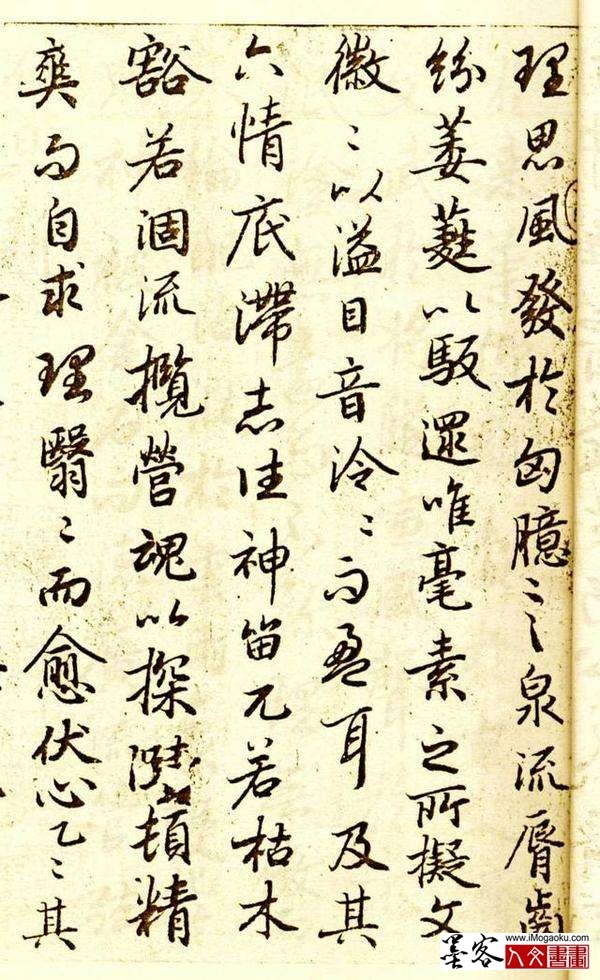 理思風發於匈臆言泉流脣齒
紛萎蕤以馺遝唯毫素之所擬文
徽〻以溢目音泠〻而盈耳及其
六情底滯志往神留兀若枯木
豁若涸流攬營魂以探賾頓精
爽而自求理翳〻而愈伏心乙〻其
墨客 www.iMogaoku.com
人文書畫